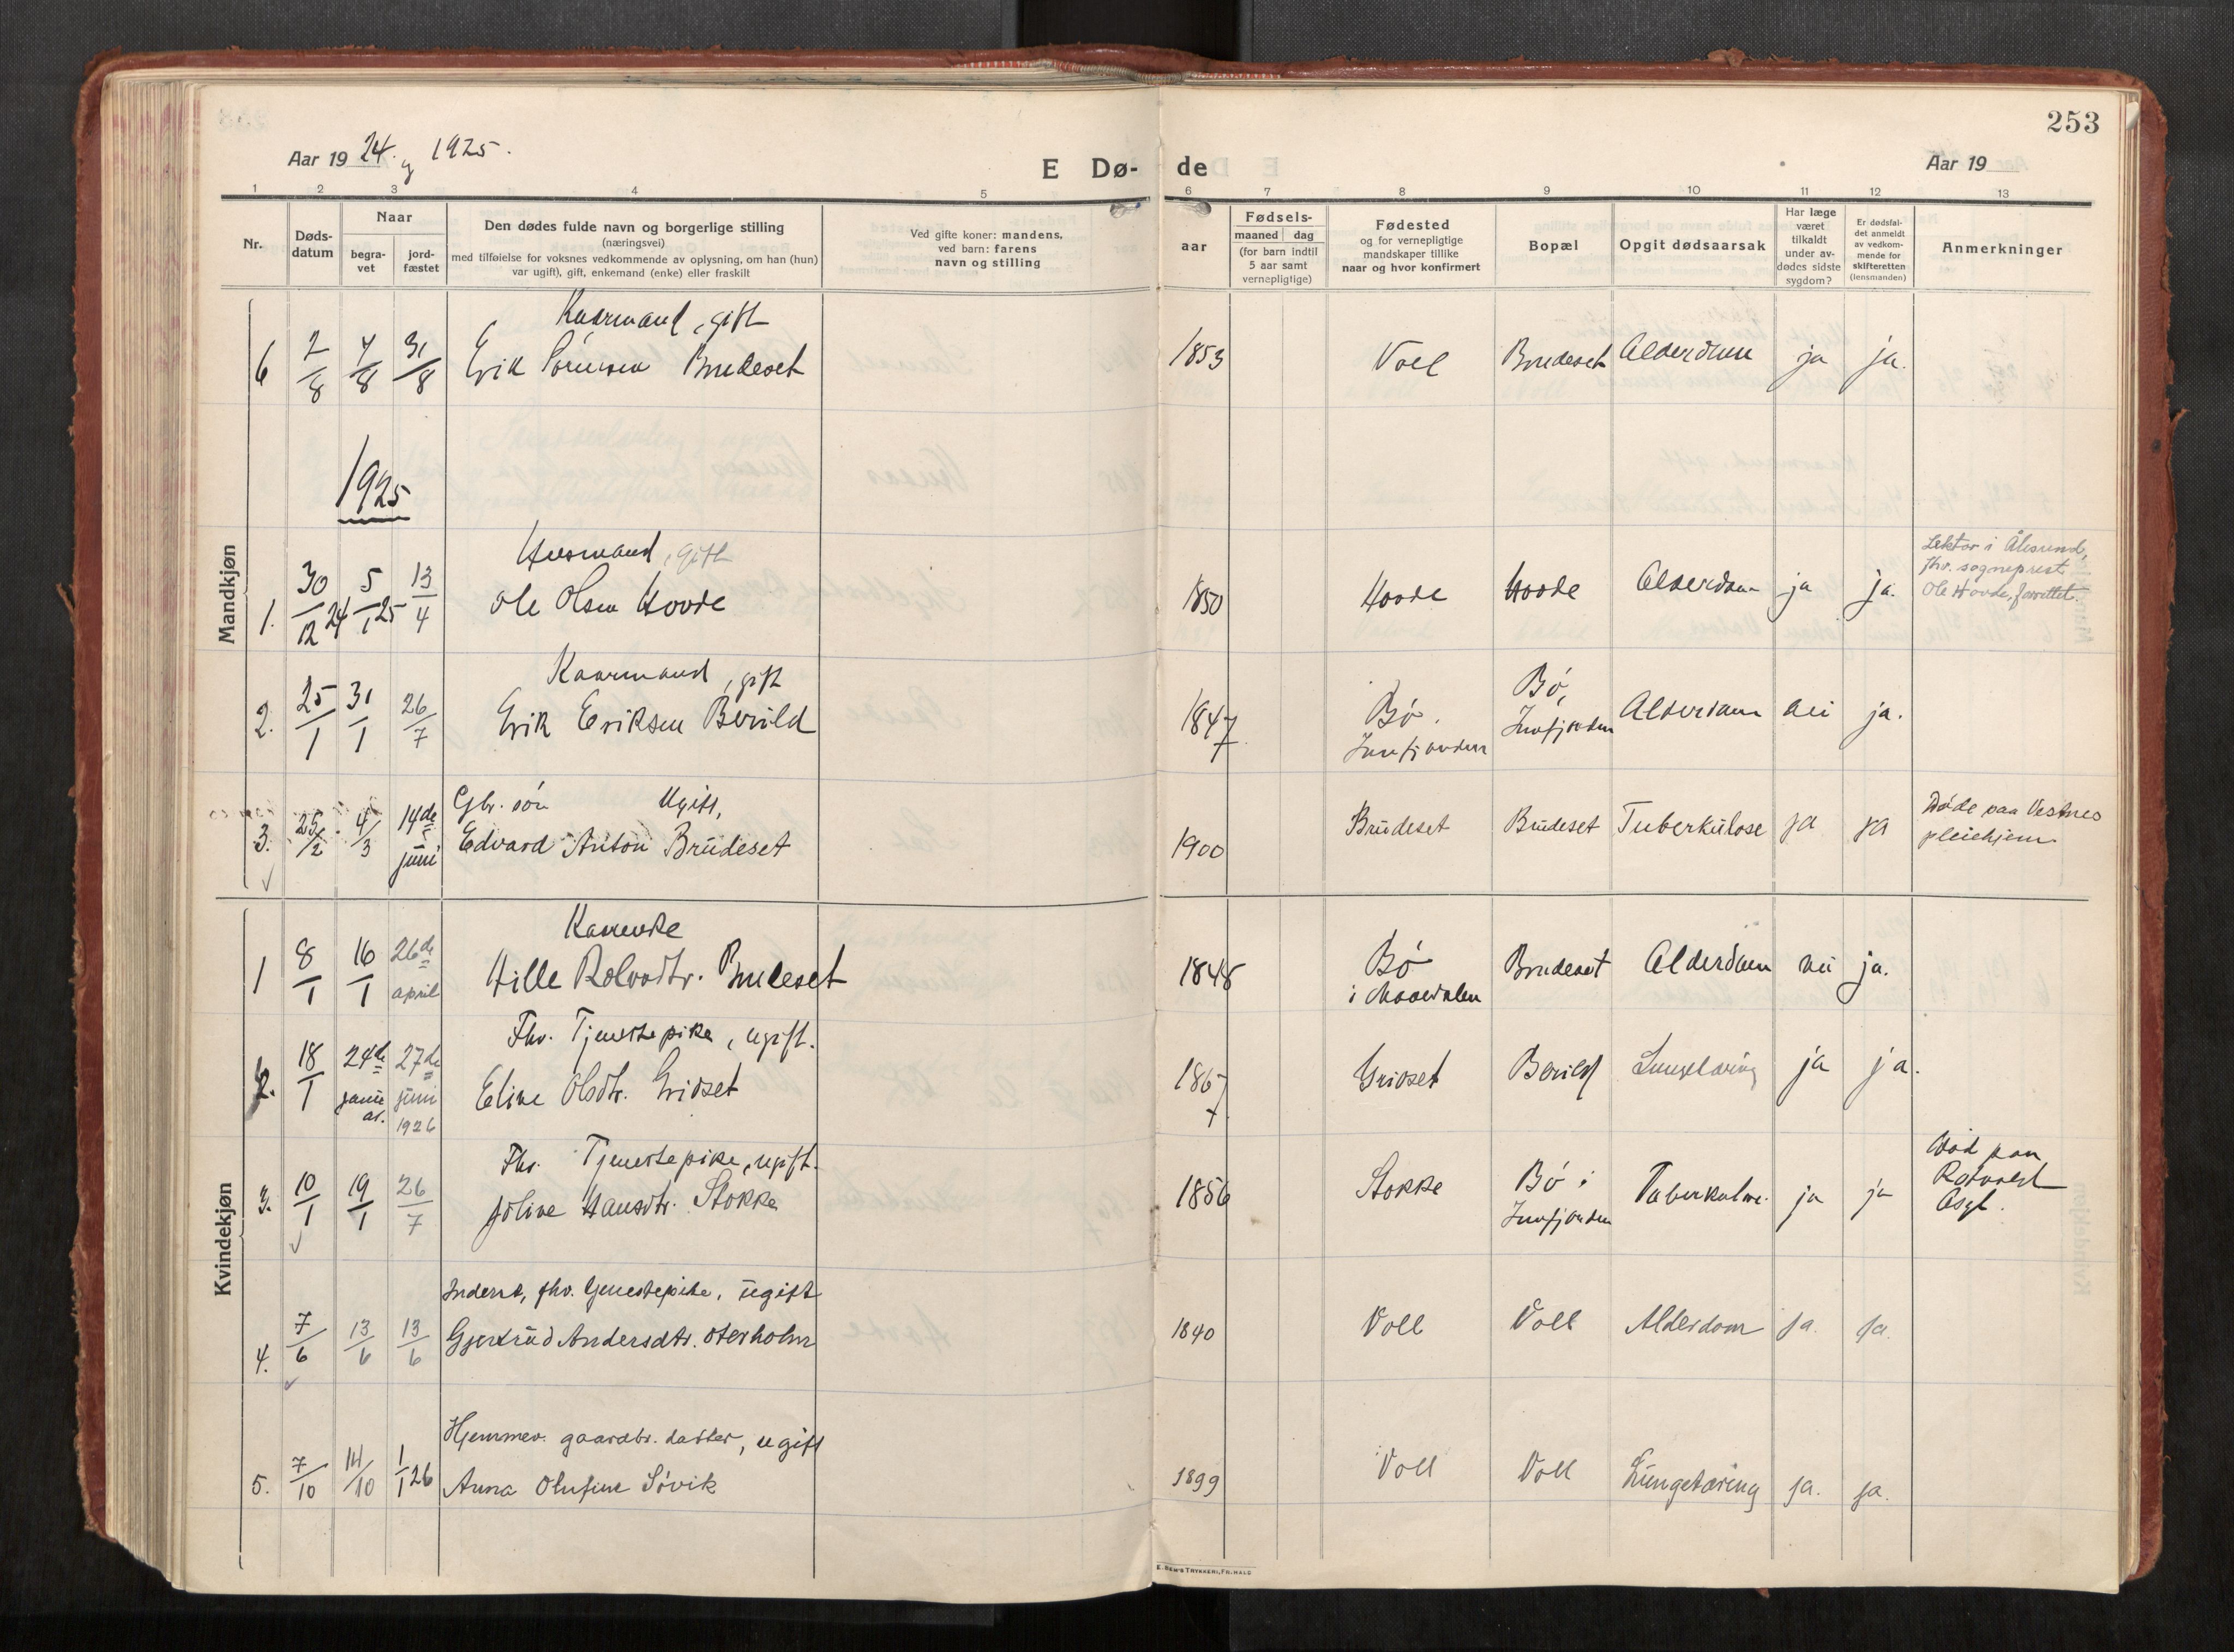 253
Aar 19 24. og 1925.
E Dø- de
Aar 19
1 2 3 4 5 6 7 8 9 10 11 12 13
Nr.
Døds-
datum
Naar
begra-
vet
jord-
fæstet
Den dødes fulde navn og borgerlige stilling
(næringsvei)
med tilføielse for voksnes vedkommende av oplysning, om han (hun)
var ugift), gift, enkemand (enke) eller fraskilt
Ved gifte koner: mandens,
ved barn: farens
navn og stilling
aar
Fødsels-
maaned dag
(for barn indtil
5 aar samt
vernepligtige)
Fødested
og for vernepligtige
mandskaper tillike
naar og hvor konfirmert
Bopæl
Opgit dødsaarsak
Har læge
været
tilkaldt
under av-
dødes sidste
sygdom?
Er dødsfal-
det anmeldt
av vedkom-
mende for
skifteretten
(lensmanden)
Anmerkninger
Mandkjøn
Kaarmand, gift
6 2/8 4/8 31/8 Erik Sørensen Brudeset 1853 Voll Brudeset Alderdom ja ja.
1925
Husmand, gift
1. 30/12 24 5/1 25 13/4 Ole Olsen Hovde 1850 Hovde Hovde Alderdom ja ja.
Lektor i Ålesund,
fhv. sogneprest
Ole Hovde, forrettet.
Kaarmand, gift
2. 25/1 31/1 26/7 Erik Eriksen Berild 1847 Bø. Innfjorden
Bø, Innfjorden Alderdom nei ja.
Gbr. søn Ugift,
3. 25/2 4/3 14de juni Edvard Anton Brudeset 1900 Brudeset Brudeset Tuberkulose ja ja
Døde paa Vestnes
pleiehjem
Kvindekjøn
Kaarenke
1 8/1 16/1 26de april Hille Rolvsdtr. Brudeset 1848 Bø
i Brudeset Alderdom nei ja.
Fhv. Tjenestepike, ugift.
2. 18/1 24de januar. 27de juni 1926 Eline Olsdtr. Gridset 1867 Gridset Berild Lungetæring ja ja.
Fhv. Tjenestepike, ugift.
3. 10/1 19/1 26/7 Joline Hansdtr. Stokke 1856 Stokke Bø i
Innfjorden Tuberkulose. ja ja
Død paa
Asyl.
Inderst, fhv. tjenestepike, ugift
4. 7/6 13/6 13/6 Gjertrud Andersdtr. Oterholm 1840 Voll Voll Alderdom ja. ja.
Hjemmev. gaardbr. datter, ugift
5. 7/10 14/10 1/1 26 Anna Olufine Søvik 1899 Voll Voll Lungetæring ja. ja.
E. SEM'S TRYKKERI, FR.HALD